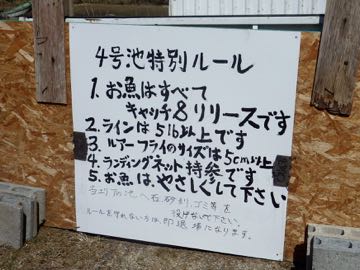 4号池特別ルール
1. お魚はすべて
キャッチ&リリースです
2. ラインは5lb以上です
3. ルアーフライのサイズは5cm以上
4. ランディングネット持参です
5. お魚は、やさしくして下さい
当エリアの池へ石、砂利、ゴミ等を
投げないで下さい。
ルールを守れない方は、即退場になります。